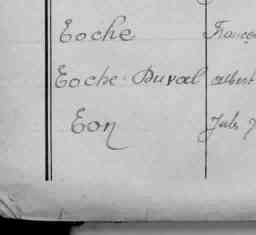 Eoche Franço
Eoche-Duval Albert
Eon Jules